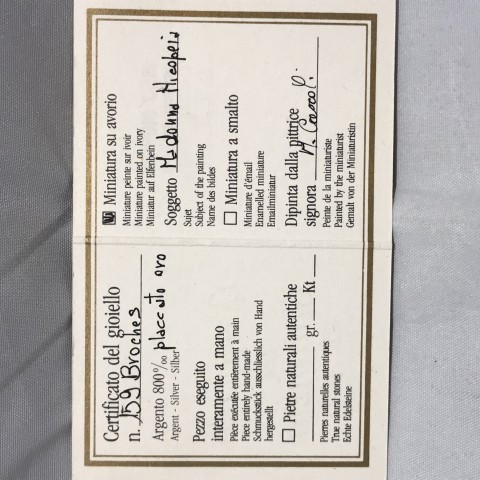 Certificato del gioiello
n. 59 Broches
Argento 800‰ placcato oro
Argent - Silver - Silber
Pezzo eseguito
interamente a mano
Pièce exécutée entièrement à main
Piece entirely hand-made
Schmuckstick ausschliesslich von Hand
hergestellt
Pietre naturali autentiche
gr. Kt
Pierres naturelles autentiques
True natural stones
Echte Edelsteine
Miniatura su avorio
Miniature peinte sur ivoir
Miniature painted on ivory
Miniatur auf Elfenbein
Soggetto Madonna Nicopeia
Sujet
Subject of the painting
Name des bildes
Miniatura a smalto
Miniature d'émail
Enamelled miniature
Emailminiatur
Dipinta dalla pittrice
signora M.
Peinte de la miniaturiste
Painted by the miniaturist
Gemalt von der Miniaturistin